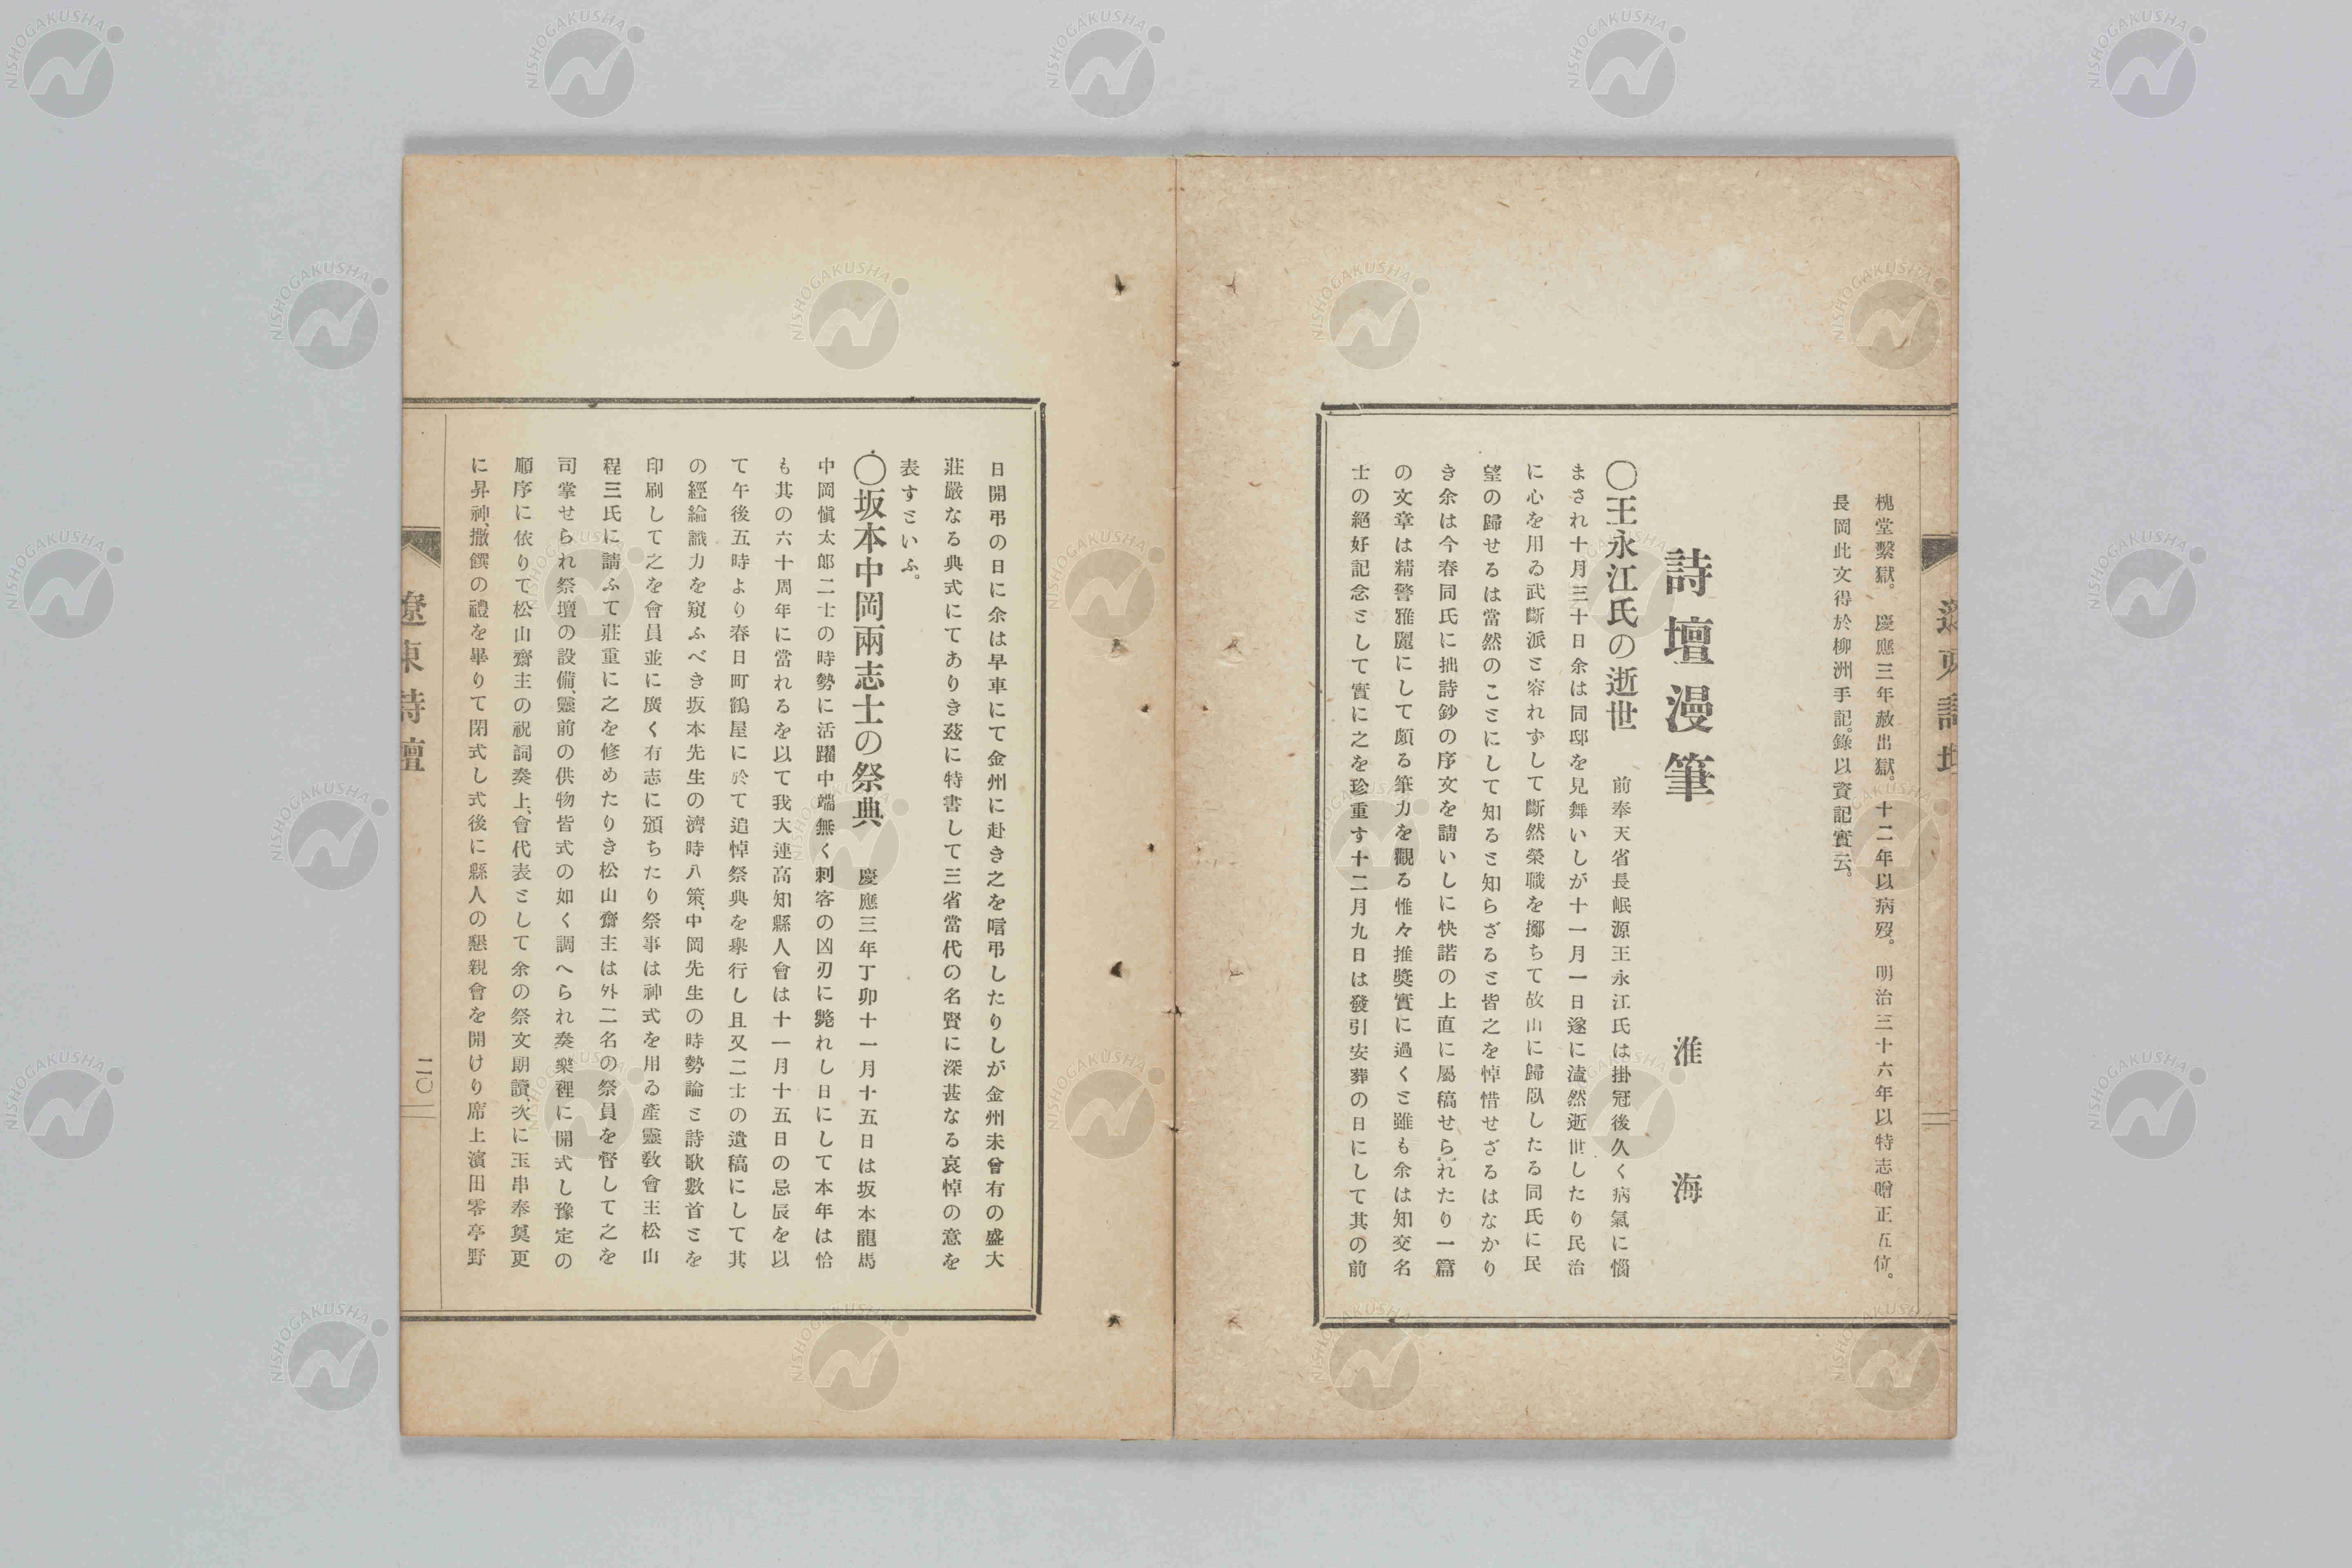 槐堂繫獄。慶應三年赦出獄。十二年以病歿。明治三十六年以特志贈正五位。
長岡此文得於柳洲手記。錄以資記實云。
詩壇漫筆
淮海
〇王永江氏の逝世　前奉天省長岷源王永江氏は掛冠後久く病氣に惱
まされ十月三十日余は同邸を見舞いしが十一月一日遂に溘然逝世したり民治
に心を用ゐ武斷派と容れずして斷然榮職を擲ちて故山に歸臥したる同氏に民
望の歸せるは當然のことにして知ると知らざると皆之を悼惜せざるはなかり
き余は今春同氏に拙詩鈔の序文を請いしに快諾の上直に屬稿せられたり一篇
の文章は精警雅麗にして頗る筆力を觀る惟々推奬實に過くと雖も余は知交名
士の絕好記念として實に之を珍重す十二月九日は發引安葬の日にして其の前
日開弔の日に余は早車にて金州に赴き之を唁弔したりしが金州未曾有の盛大
莊嚴なる典式にてありき茲に特書して三省當代の名賢に深甚なる哀悼の意を
表すといふ。
〇坂本中岡兩志士の祭典　慶應三年丁卯十一月十五日は坂本龍馬
中岡愼太郎二士の時勢に活躍中端無く刺客の凶刃に斃れし日にして本年は恰
も其の六十周年に當れるを以て我大連高知縣人會は十一月十五日の忌辰を以
て午後五時より春日町鶴屋に於て追悼祭典を擧行し且又二士の遺稿にして其
の經綸識力を窺ふべき坂本先生の濟時八策、中岡先生の時勢論と詩歌數首とを
印刷して之を會員並に廣く有志に頒ちたり祭事は神式を用ゐ產靈敎會主松山
程三氏に請ふて莊重に之を修めたりき松山齋主は外二名の祭員を督して之を
司掌せられ祭壇の設備、靈前の供物皆式の如く調へられ奏樂裡に開式し豫定の
順序に依りて松山齋主の祝詞奏上、會代表として余の祭文朗讀、次に玉串奉奠更
に昇神、撤饌の禮を畢りて閉式し式後に縣人の懇親會を開けり席上濱田零亭野
遼東詩壇
二〇